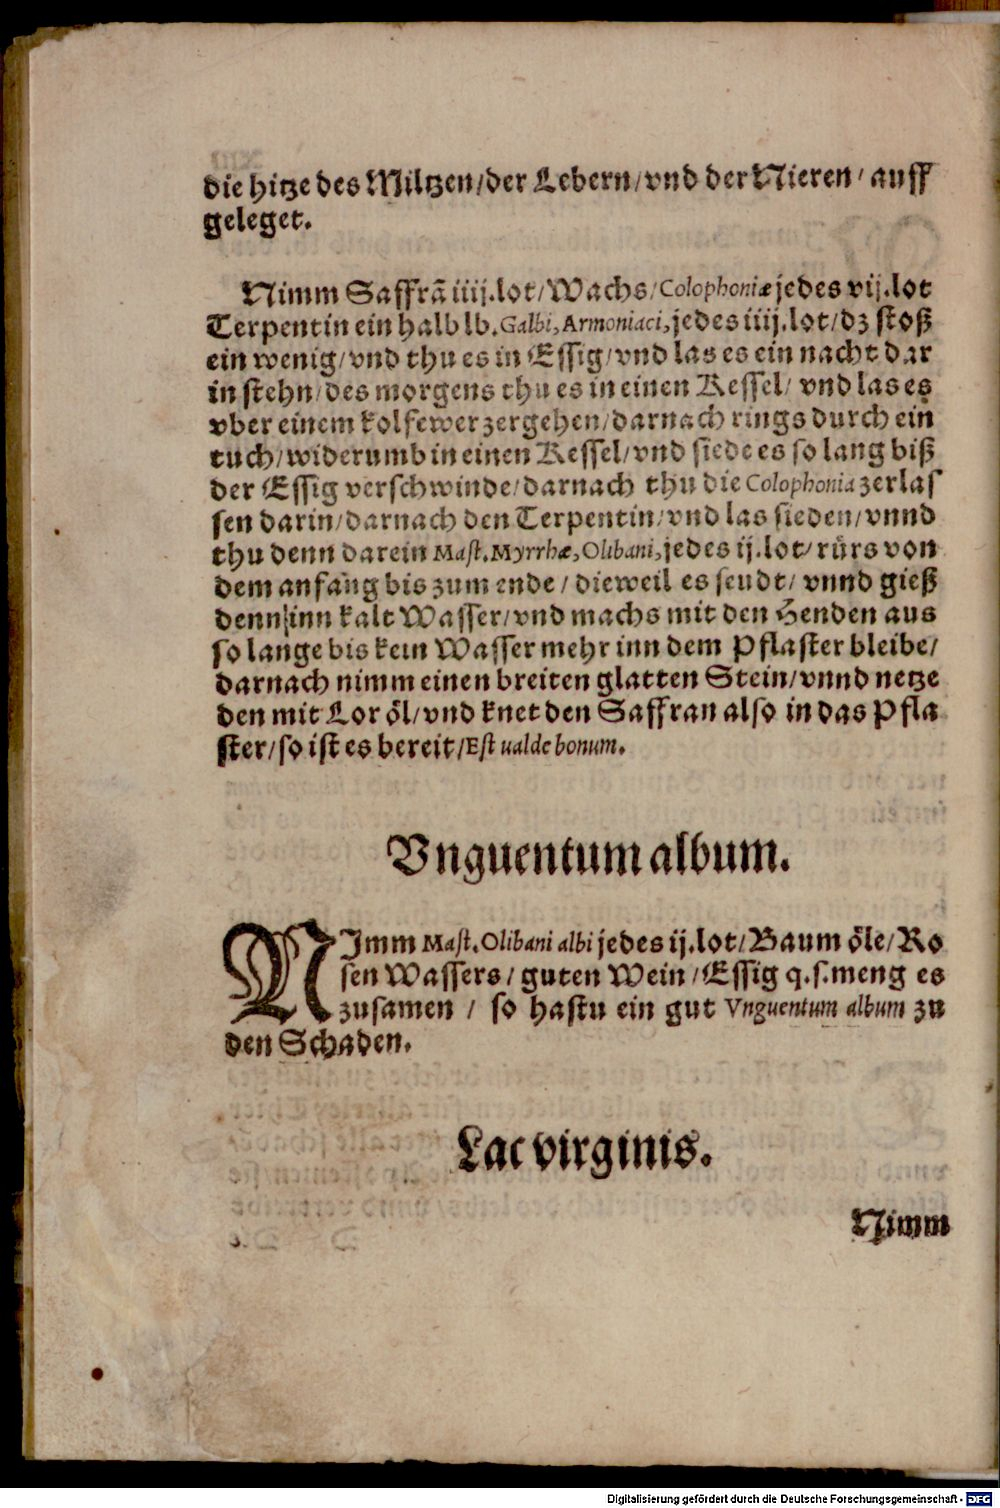 die hitze des Miltzen/der Lebern/vnd der Nieren/ auff
geleget.
Nimm Saffrã iiij.lot/Wachs/Colophoniæ jedes vij.lot
Terpentin ein halb lb.Galbi,Armoniaci,jedes iiij.lot/dz stoß
ein wenig/vnd thu es in Essig/vnd las es ein nacht dar
in stehn/des morgens thu es in einen Kessel/ vnd las es
vber einem kolfewer zergehen/darnach rings durch ein
tuch/widerumb in einen Kessel/vnd siede es so lang biß
der Essig verschwinde/darnach thu die Colophonia zerlas
sen darin/darnach den Terpentin/vnd las sieden/vnnd
thu denn darein Mast.Myrrhæ,Olibani,jedes ij.lot/rürs von
dem anfang bis zum ende/ dieweil es seudt/ vnnd gieß
denn inn kalt Wasser/vnd machs mit den Henden aus
so lange bis kein Wasser mehr inn dem Pflaster bleibe/
darnach nimm einen breiten glatten Stein/vnnd netze
den mit Lor öl/vnd knet den Saffran also in das Pfla
ster/so ist es bereit/Est ualde bonum.
Vnguentum album.
NImm Mast.Olibani albi jedes ij.lot/Baum öle/Ro
sen Wassers/guten Wein/Essig q.s.meng es
zusamen / so hastu ein gut Vnguentum album zu
den Schaden.
Lac virginis.
Nimm
Digitalisierung gefördert durch die Deutsche Forschungsgemeinschaft - DFG